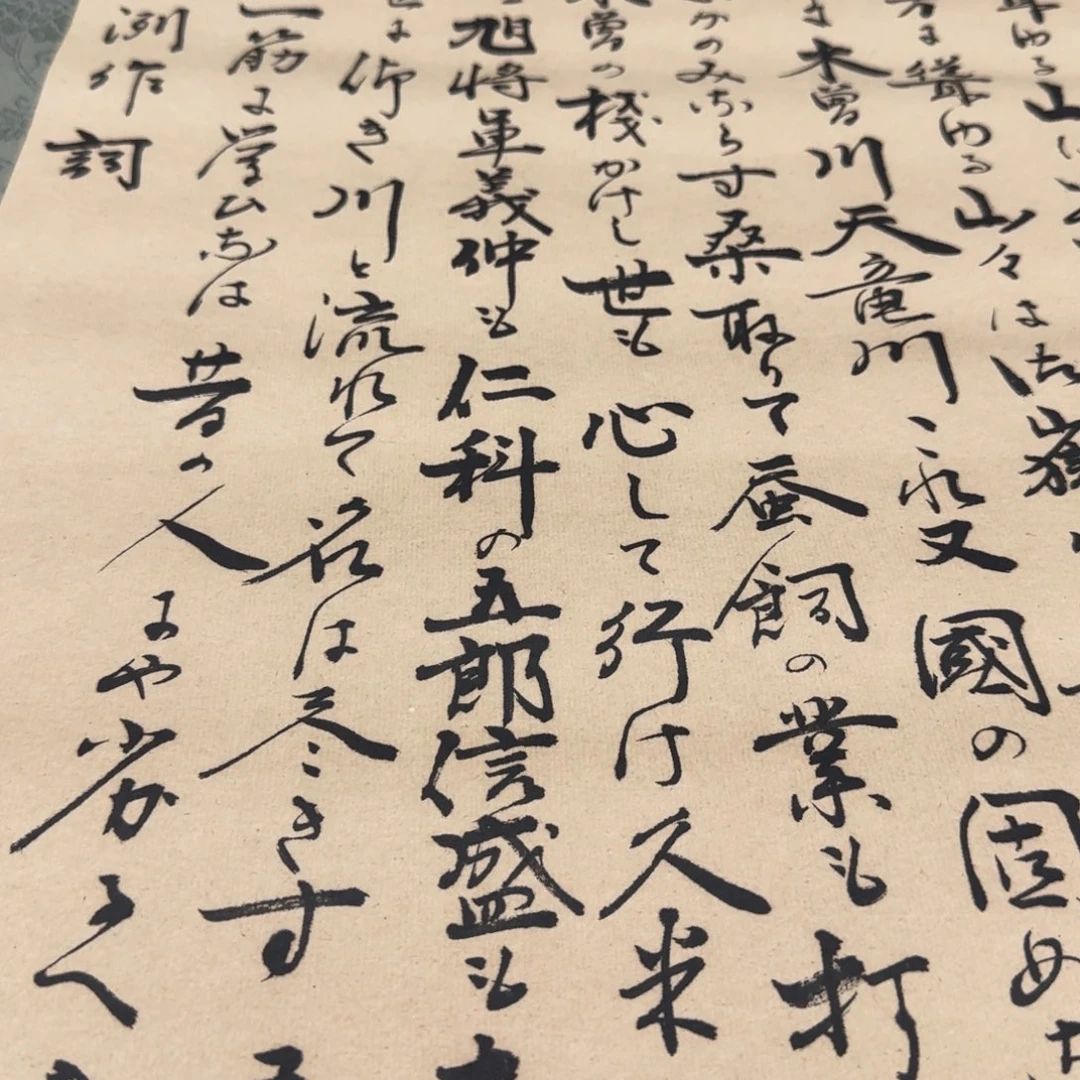 ゆる山
方に聳ゆる山々は御嶽
木曽川天竜川これ又國の固め
かのみならす桑取りて蚕飼の業も打
木曽の桟かけし世も心して行け久米
旭将軍義仲も仁科の五郎信盛も
に仰き川と流れて名は尽きす
一筋に学ひなは昔の人にや劣るへ
洌作詞